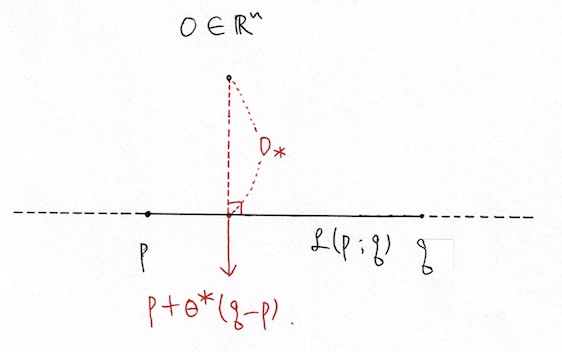 O ∈ ℝⁿ
D*
P
L(p;q)
q
p+θ*(q-p).